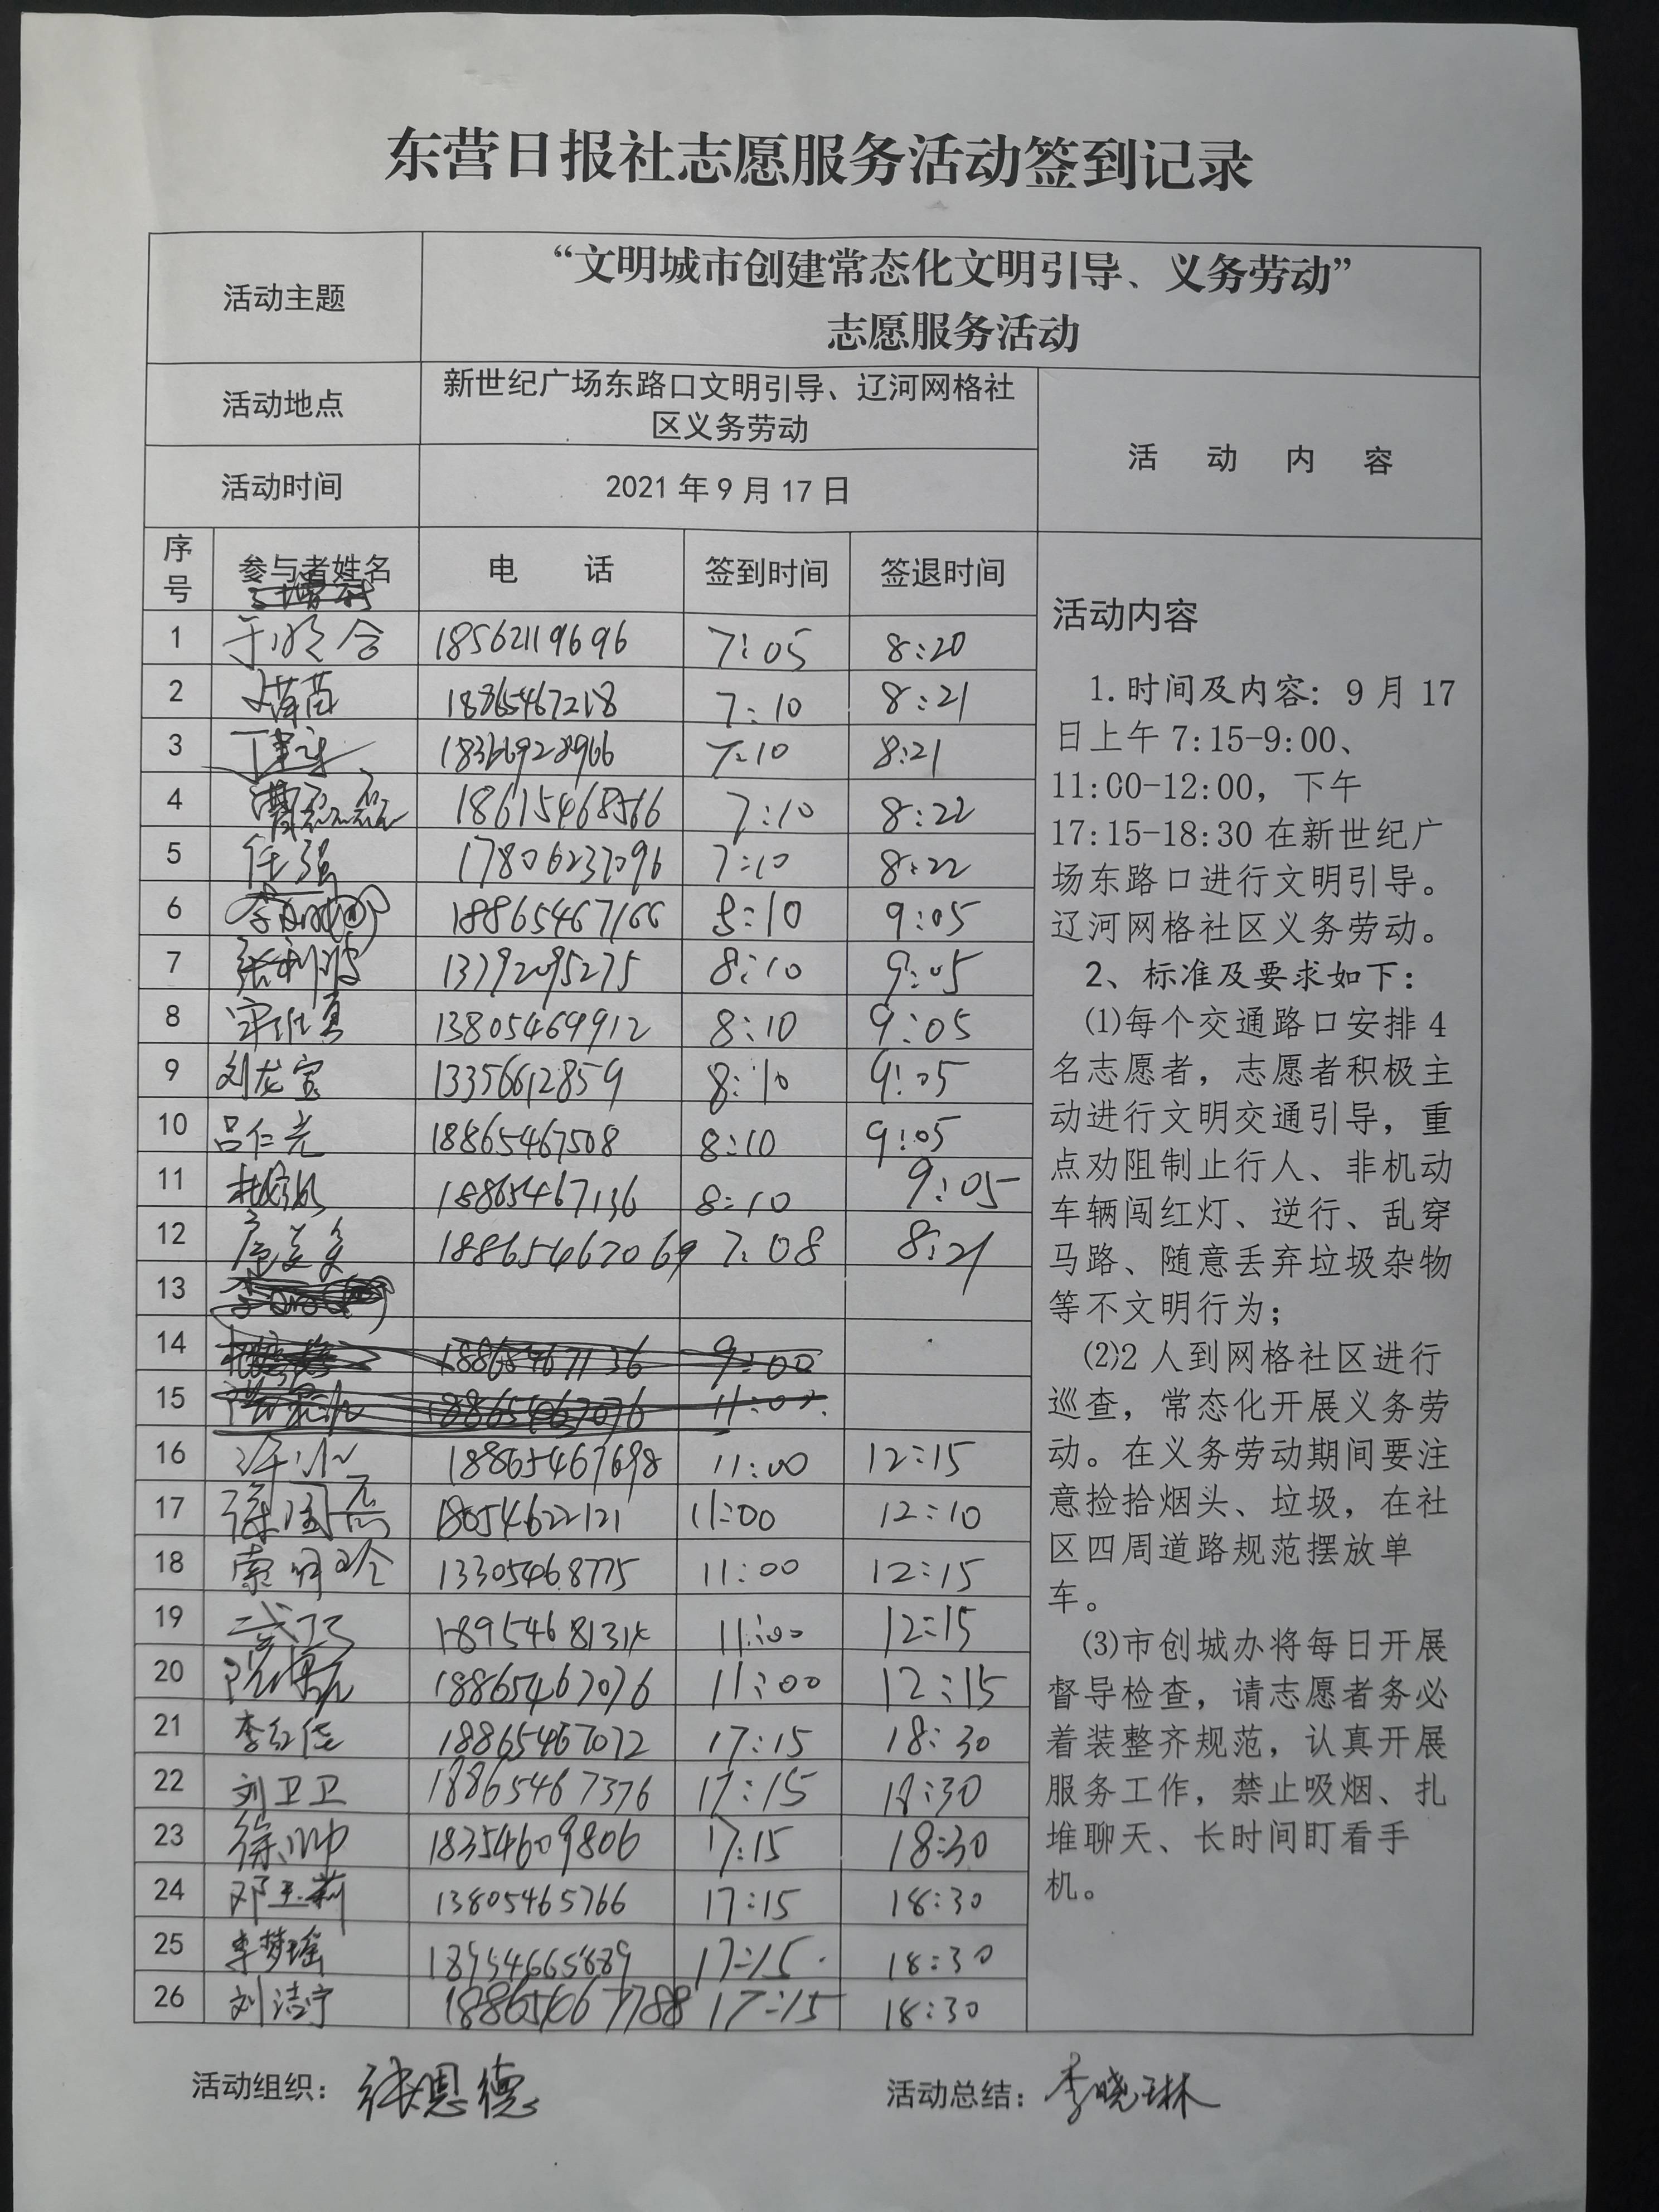 东营日报社志愿服务活动签到记录
活动主题
“文明城市创建常态化文明引导、义务劳动”
志愿服务活动
活动地点
新世纪广场东路口文明引导、辽河网格社
区义务劳动
活动时间
2021年9月17日
活 动 内 容
序号 参与者姓名 电 话 签到时间 签退时间
1 18562119696 7:05 8:20
2 18865467218 7:10 8:21
3 18366928966 7:10 8:21
4 18615468566 7:10 8:22
5 任强 17806237096 7:10 8:22
6 18865467166 8:10 9:05
7 张利波 13792095275 8:10 9:05
8 13805469912 8:10 9:05
9 刘龙宝 13356612859 8:10 9:05
10 吕仁光 18865467508 8:10 9:05
11 18865467136 8:10 9:05
12 18865467069 7:08 8:21
13
14 18865467136 9:00
15 18865467076
16 18865467698 11:00 12:15
17 18054622121 11:00 12:10
18 13305468775 11:00 12:15
19 11:00 12:15
20 18865467076 11:00 12:15
21 18865467072 17:15 18:30
22 刘卫卫 18865467376 17:15 18:30
23 徐帅 18354609806 17:15 18:30
24 邓玉莉 13805465766 17:15 18:30
25 李梦瑶 17:15 18:30
26 刘洁宁 18865467788 17:15 18:30
活动内容
1.时间及内容：9月17
日上午7:15-9:00、
11:00-12:00，下午
17:15-18:30在新世纪广
场东路口进行文明引导。
辽河网格社区义务劳动。
2、标准及要求如下：
⑴每个交通路口安排4
名志愿者，志愿者积极主
动进行文明交通引导，重
点劝阻制止行人、非机动
车辆闯红灯、逆行、乱穿
马路、随意丢弃垃圾杂物
等不文明行为；
⑵2人到网格社区进行
巡查，常态化开展义务劳
动。在义务劳动期间要注
意捡拾烟头、垃圾，在社
区四周道路规范摆放单
车。
⑶市创城办将每日开展
督导检查，请志愿者务必
着装整齐规范，认真开展
服务工作，禁止吸烟、扎
堆聊天、长时间盯看手
机。
活动组织：张恩德
活动总结：李晓琳